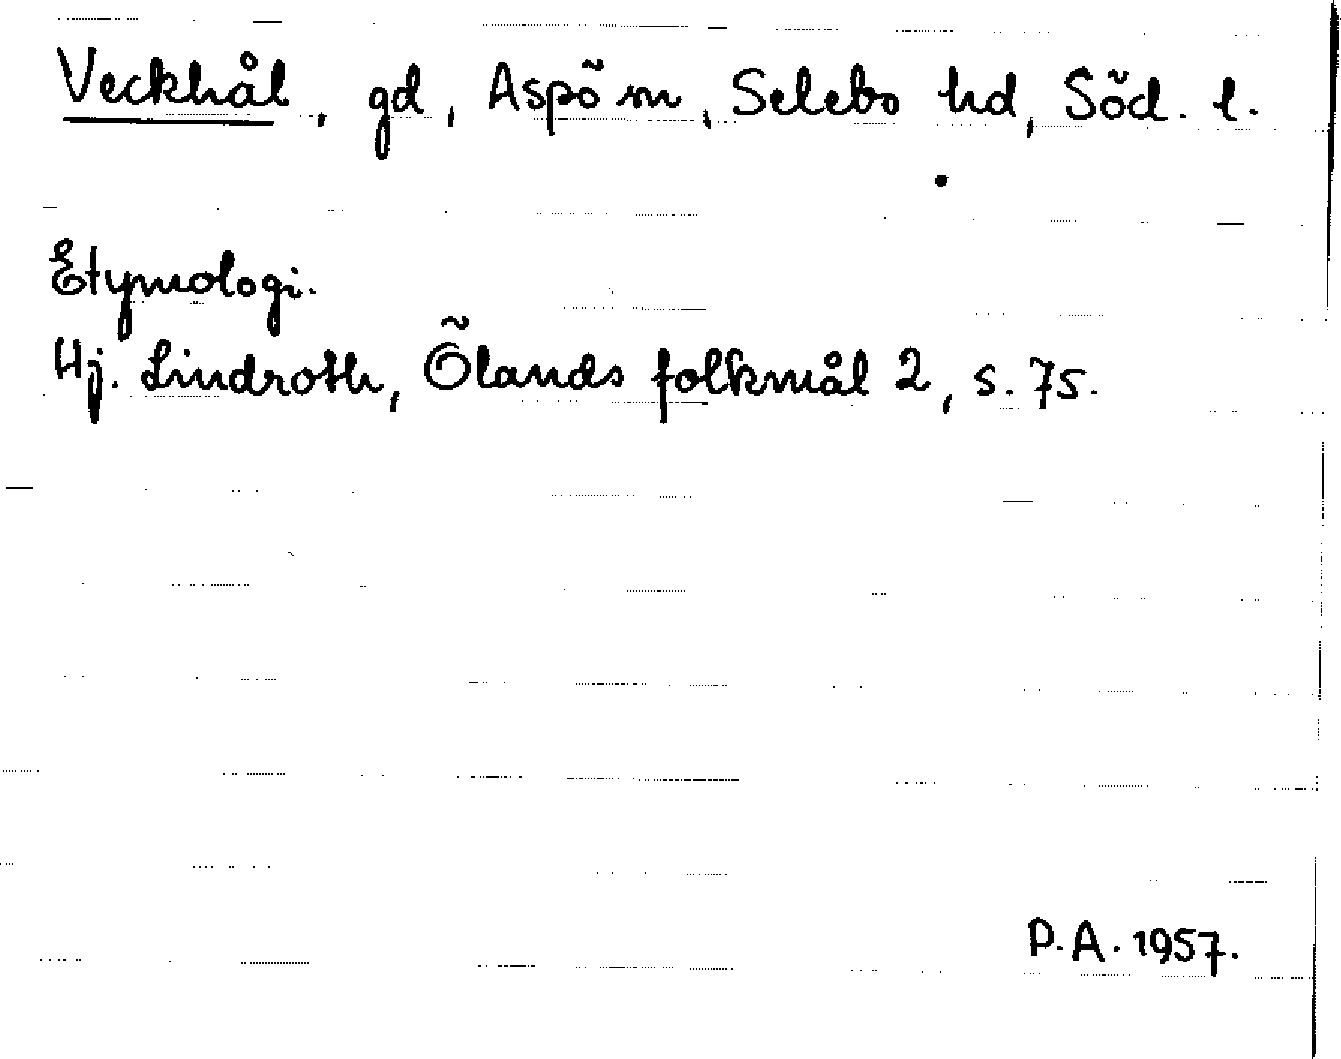 Veckhål, gd, Aspö sn, Selebo hd, Söd. l.
Etymologi.
Hj. Lindroth, Ölands folkmål 2, s. 75.
P.A. 1957.